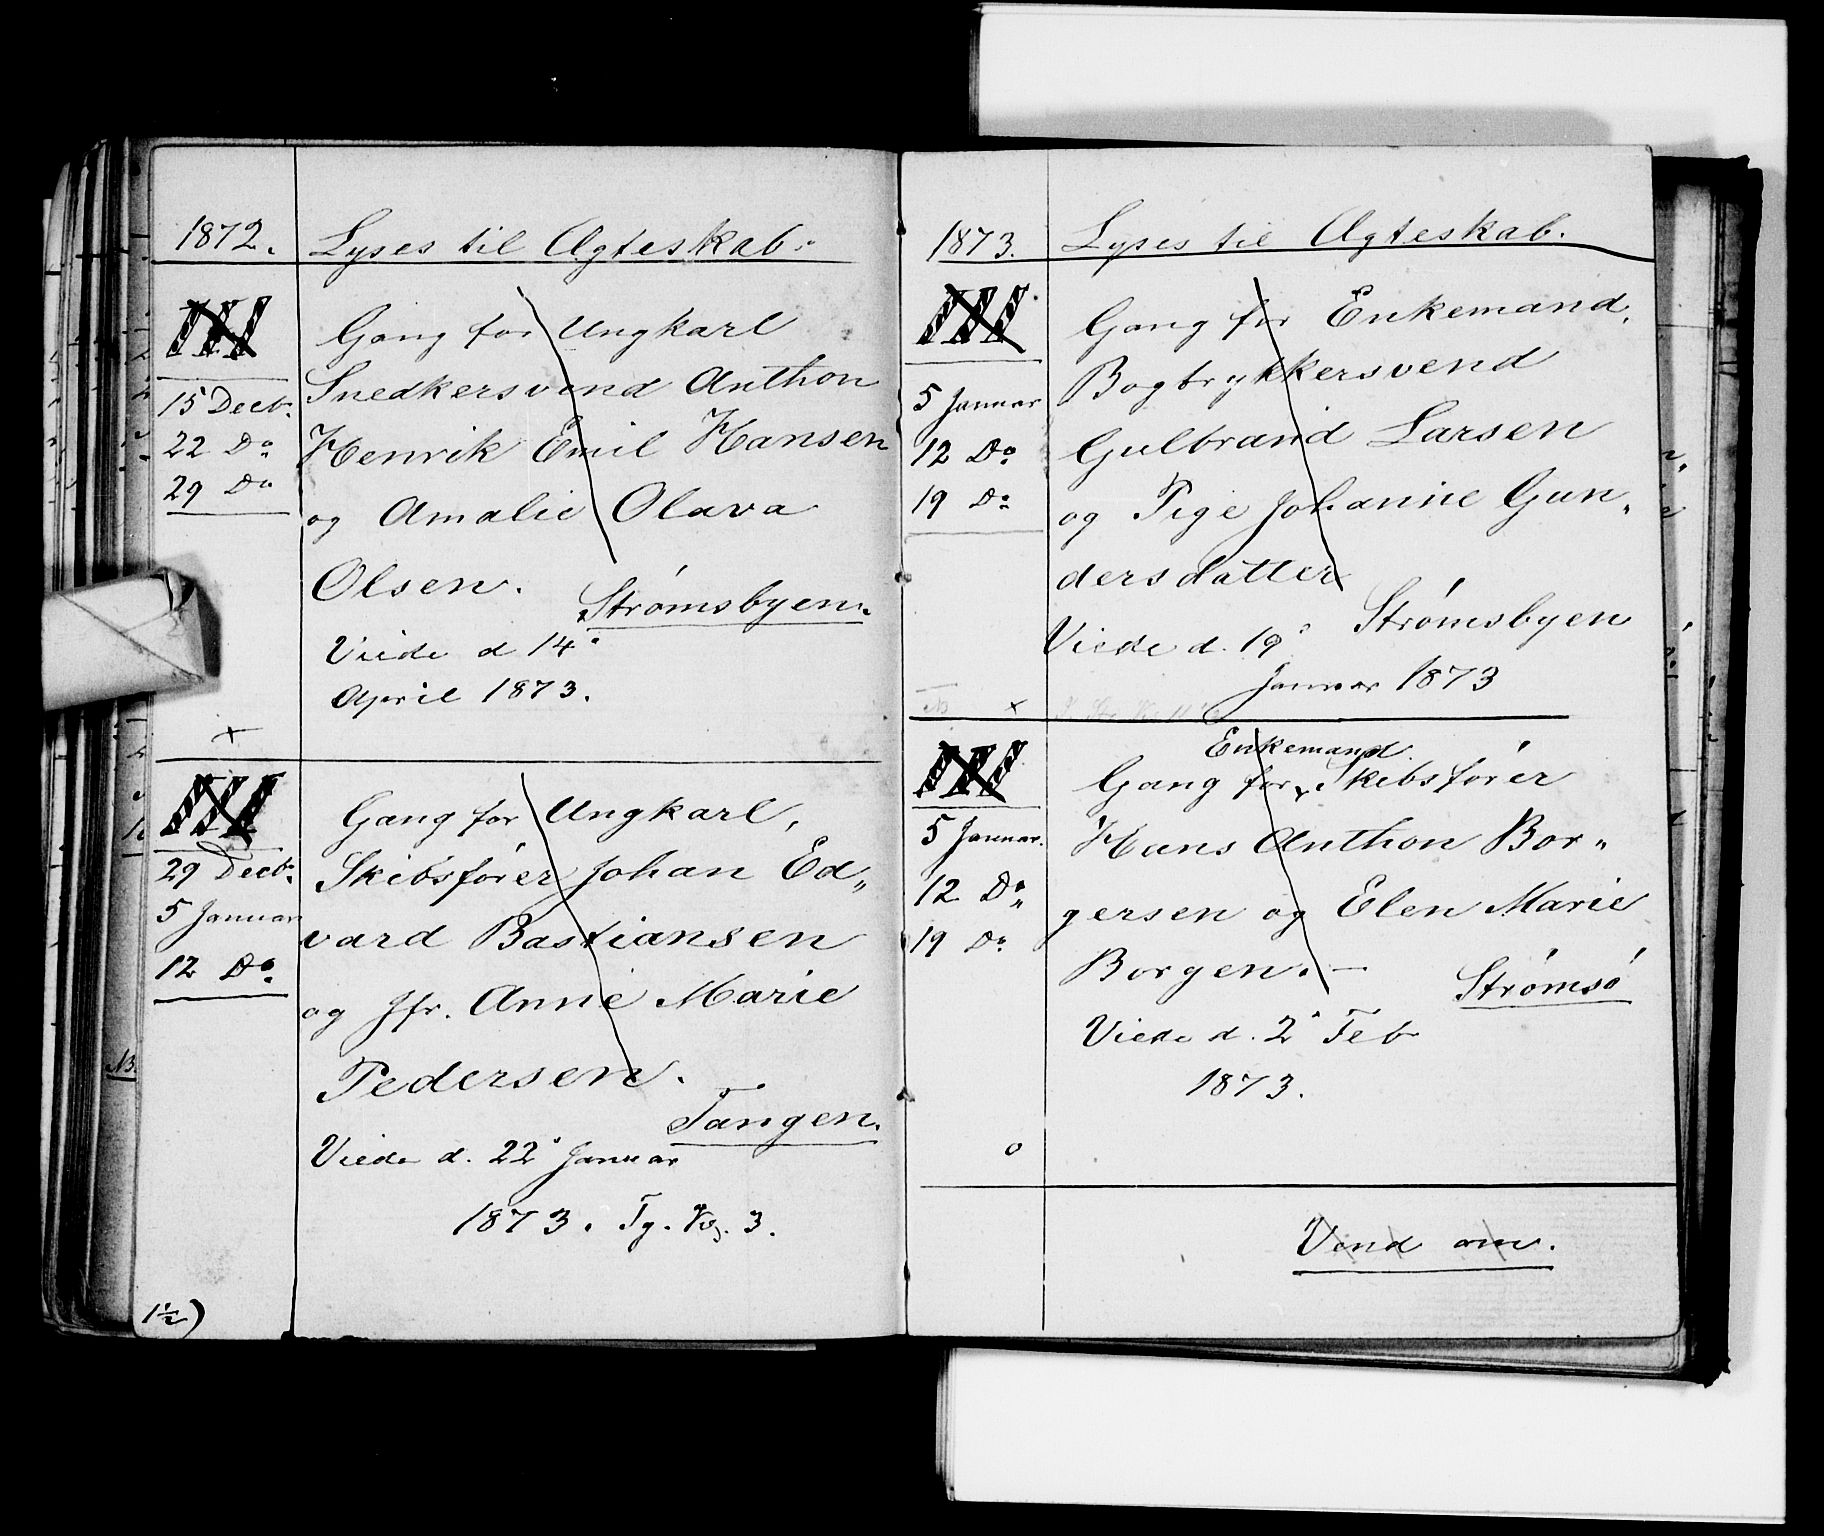 1872.
Lyses til Ægteskab.
III
15 Decb.
22 Do
29 Do
Gang for Ungkarl
Snedkersvend Anthon
Henrik Emil Hansen
og Amalie Olava
Olsen.
Strømsbyen.
Viede d 14
April 1873.
x
III
29 Decb.
5 Januar
12 Do
Gang for Ungkarl,
Skibsfører Johan Ed„
vard Bastiansen
og Jfr. Anne Marie
Pedersen.
Tangen.
Viede d. 22 Januar
1873. Tg. Kg. 3.
1½)
1873.
Lyses til Ægteskab.
III
5 Januar
12 Do
19 Do
Gang for Enkemand,
Bogtrykkersvend
Gulbrand Larsen
og Pige Johanne Gun„
dersdatter
Strømsbyen
Viede d. 19
Januar 1873
x
III
5 Januar.
12 Do
19 Do
Enkemand
Gang for Skibsfører
Hans Anthon Bor„
gersen og Elen Marie
Borgen. —
Strømsø
Viede d. 2 Feb
1873.
o
Vend om.